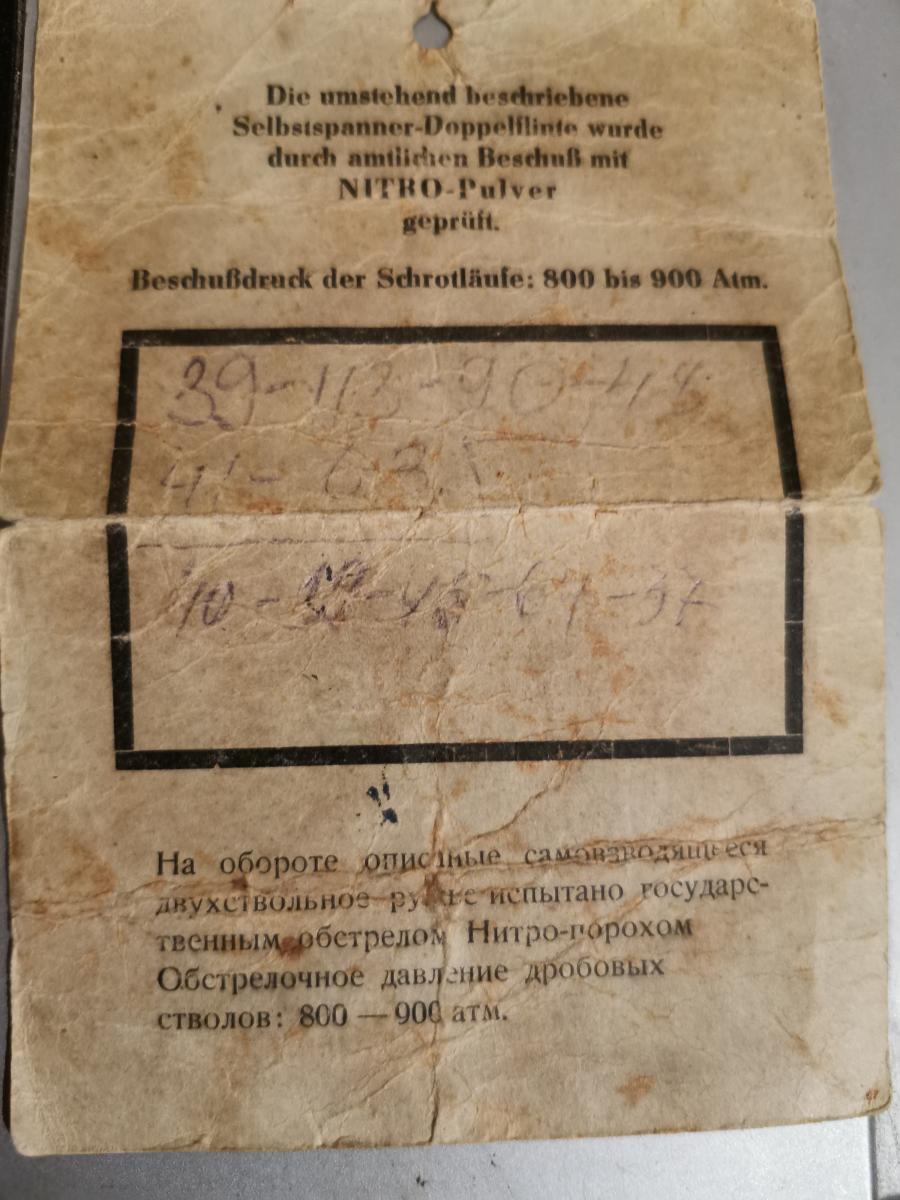 Die umstehend beschriebene
Selbstspanner-Doppelflinte wurde
durch amtlichen Beschuß mit
NITRO-Pulver
geprüft.
Beschußdruck der Schrotläufe: 800 bis 900 Atm.
39-113-90-
41-
40 - - -37
На обороте описанные самовзводящееся
двухствольное ружье испытано государс-
твенным обстрелом Нитро-порохом
Обстрелочное давление дробовых
стволов: 800 — 900 атм.